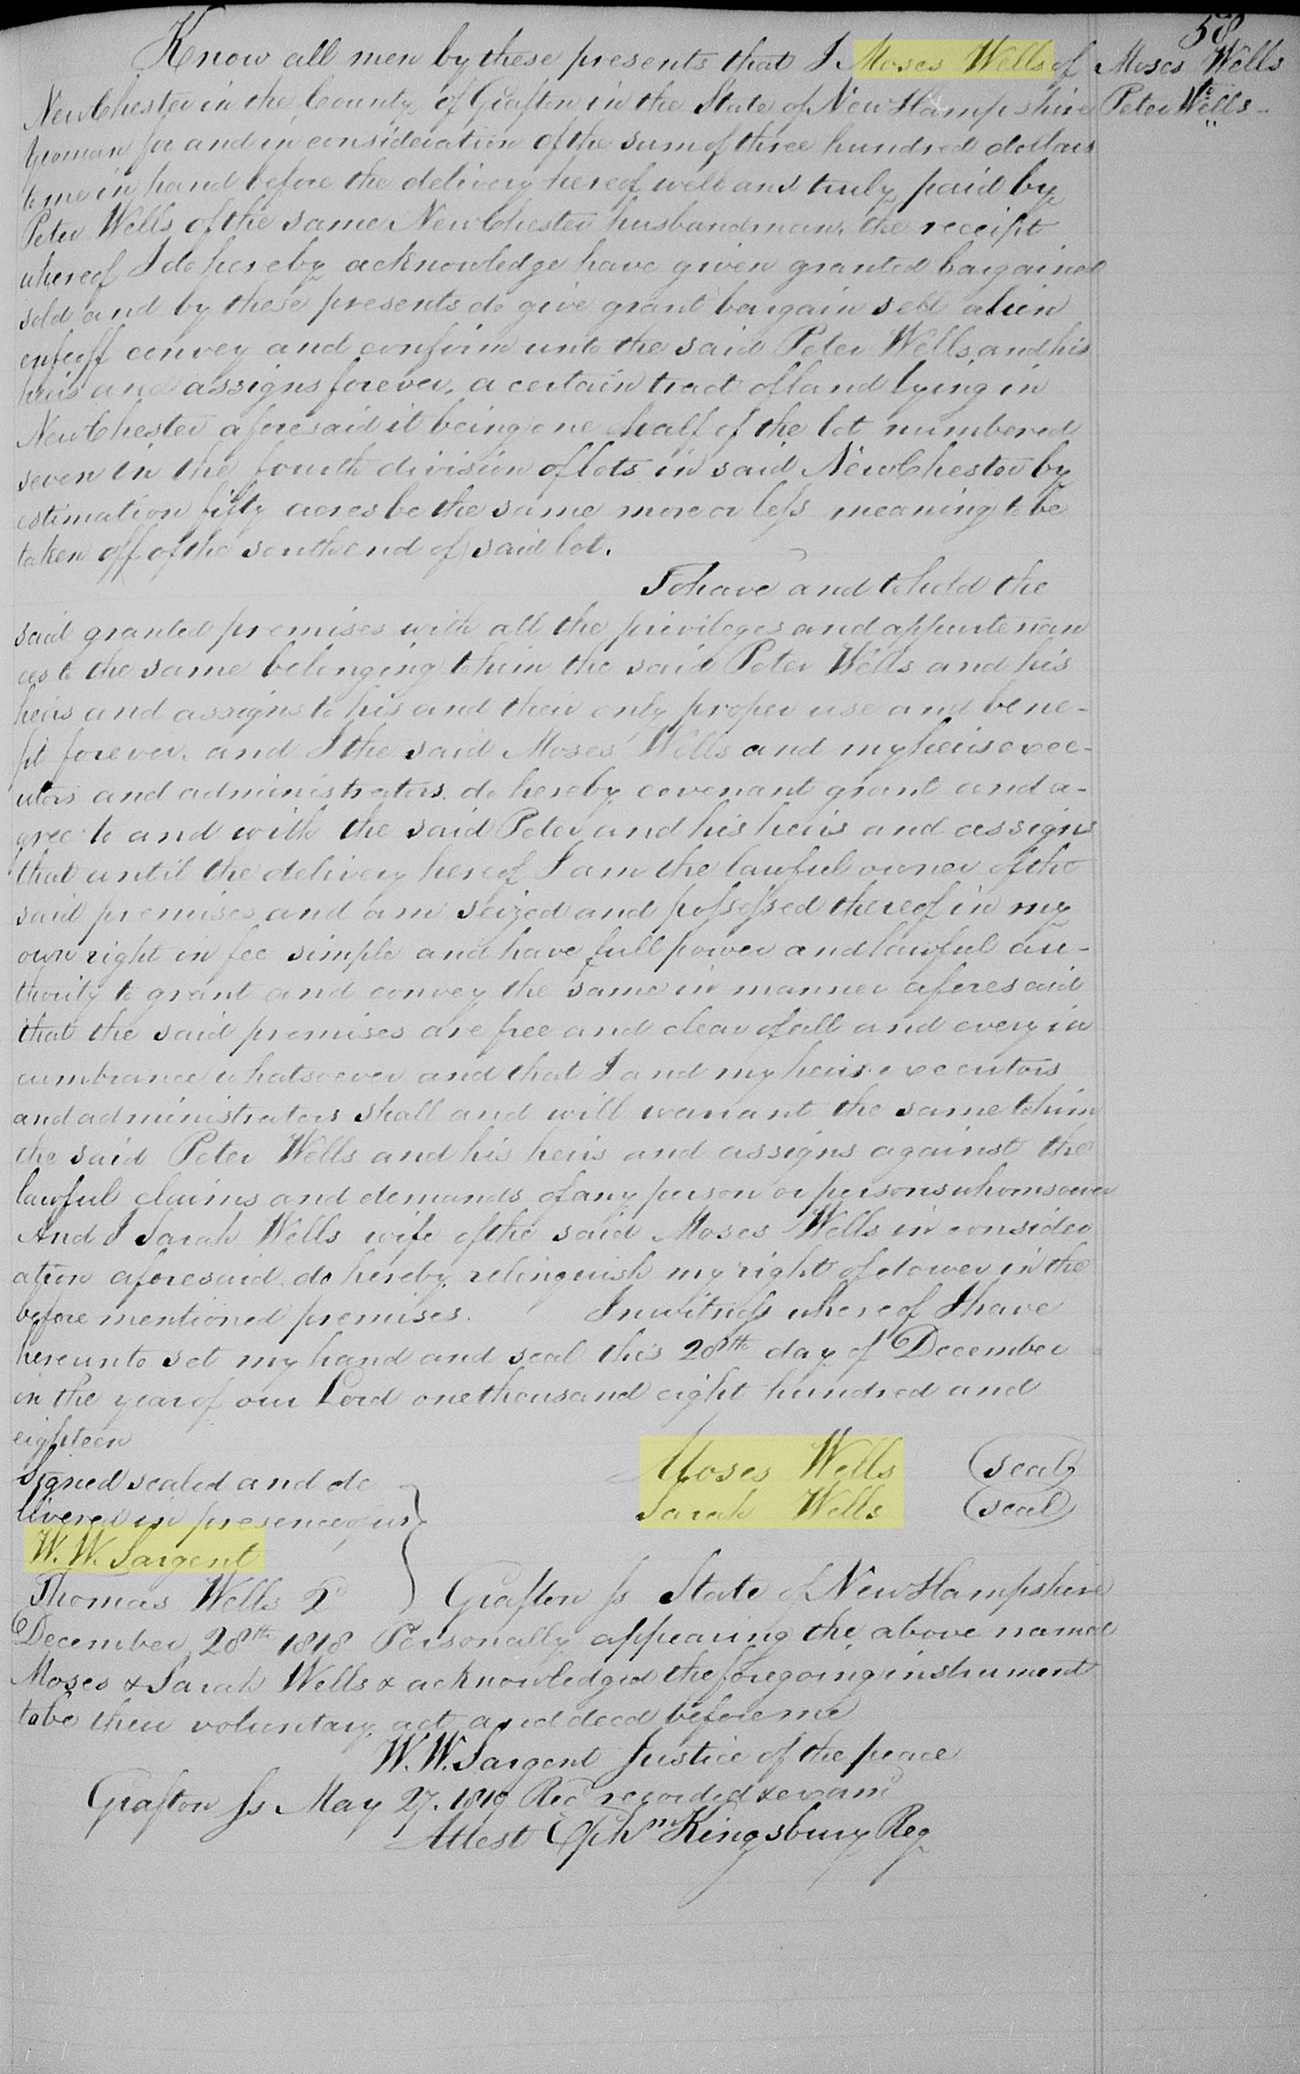 58
Know all men by these presents that I Moses Wells of
Moses Wells
to
Peter Wells
New Chester in the County of Grafton in the State of New Hampshire
yeoman for and in consideration of the sum of three hundred dollars
to me in hand before the delivery hereof well and truly paid by
Peter Wells of the same New Chester husbandman, the receipt
whereof I do hereby acknowledge have given granted bargained
sold and by these presents do give grant bargain sell alien
enfeoff convey and confirm unto the said Peter Wells and his
heirs and assigns forever, a certain tract of land lying in
New Chester aforesaid it being one half of the lot numbered
seven in the fourth division of lots in said New Chester by
estimation fifty acres be the same more or less meaning to be
taken off of the south end of said lot.
To have and to hold the
said granted premises with all the privileges and appurtenan
ces to the same belonging to him the said Peter Wells and his
heirs and assigns to his and their only proper use and bene-
fit forever. and I the said Moses Wells and my heirs exec-
utors and administrators do hereby covenant grant and a-
gree to and with the said Peter and his heirs and assigns
that until the delivery hereof I am the lawful owner of the
said premises and am seized and possessed thereof in my
own right in fee simple and have full power and lawful au-
thority to grant and convey the same in manner aforesaid
that the said premises are free and clear of all and every in
cumbrance whatsoever and that I and my heirs executors
and administrators shall and will warrant the same to him
the said Peter Wells and his heirs and assigns against the
lawful claims and demands of any person or persons whomsoever
And I Sarah Wells wife of the said Moses Wells in consider
ation aforesaid do hereby relinquish my right of dower in the
before mentioned premises. In witness whereof I have
hereunto set my hand and seal this 28th day of December
in the year of our Lord one thousand eight hundred and
eighteen
Moses Wells (seal)
Signed sealed and de
Sarah Wells (seal)
livered in presence of us
W. W. Sargent
Thomas Wells 2d
Grafton ss State of New Hampshire
December 28th 1818 Personally appearing the above named
Moses & Sarah Wells & acknowledged the foregoing instrument
to be their voluntary act and deed before me
W. W. Sargent Justice of the peace
Grafton ss May 27. 1819 Recd recorded & examd
Attest Ephm Kingsbury Reg